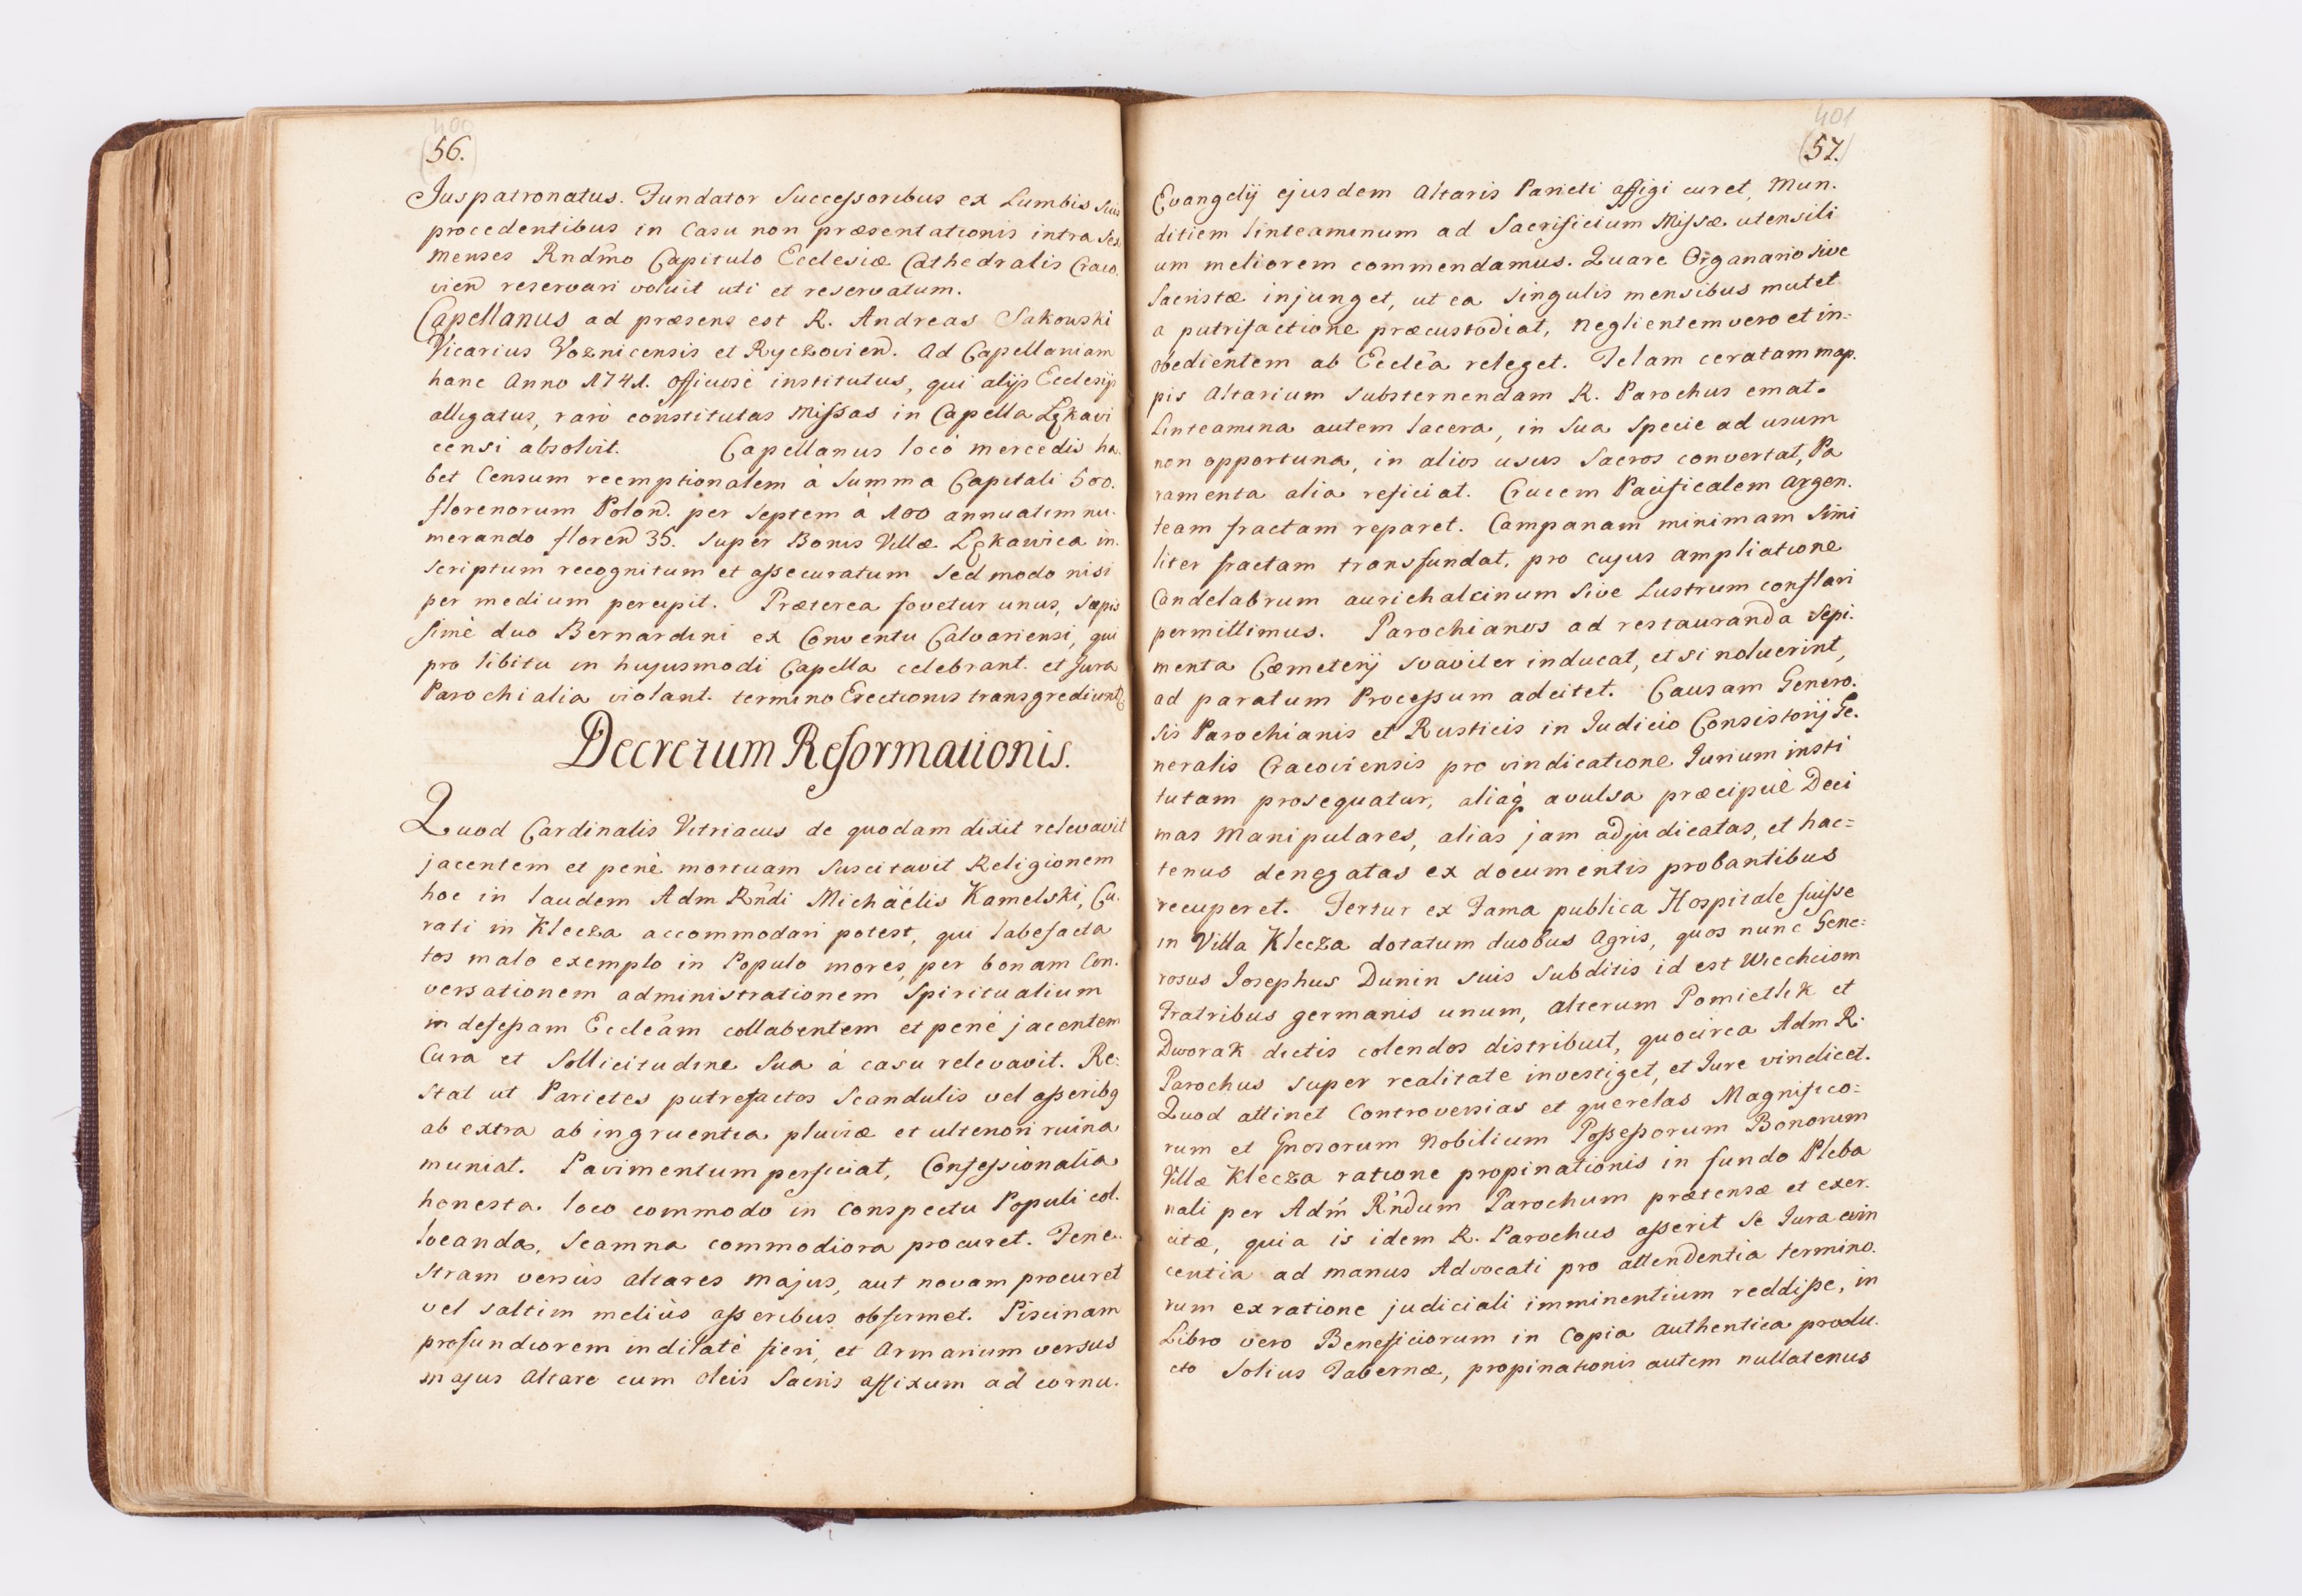 400
56.
Juspatronatus. Fundator Successoribus ex Lumbis suis
procedentibus in Casu non præsentationis intra Sex
Menses Rndmo Capitulo Ecclesiæ Cathedralis Craco.
vien reservari voluit uti et reservatum.
Capellanus ad præsens est R. Andreas Sakowski
Vicarius Voznicensis et Ryczovien. Ad Capellaniam
hanc Anno 1741. officiosè institutus, qui alijs Ecclesijs
alligatus, rarò constitutas Missas in Capella Lękavi
censi absolvit. Capellanus locô mercedis ha.
bet Censum reemptionalem à Summa Capitali 500.
florenorum Polon. per Septem à 100 annuatim nu.
merando floren 35. Super Bonis Villæ Lękawica in.
scriptum recognitum et assecuratum sed modo nisi
per medium percipit. Præterea fovetur unus, sæpis
simè duo Bernardini ex Conventu Calvariensi, qui
pro libitu in hujusmodi Capella celebrant et Jura
Parochialia violant. termino Erectionis transgrediunt
Decretum Reformationis.
Quod Cardinalis Vitriacus de quodam dixit relevavit
jacentem et penè mortuam Suscitavit Religionem
hoc in laudem Adm Rndi Michäelis Kamelski, Cu.
rati in Klecza accommodari potest, qui labefacta
tos malo exemplo in Populo mores, per bonam Con.
versationem administrationem Spiritualium
in defessam Eccleam collabentem et penè jacentem
Cura et Sollicitudine Sua à casu relevavit. Re.
stat ut Parietes putrefactos Scandulis vel asseribq
ab extra ab ingruentia pluviæ et ulteriori ruina
muniat. Pavimentum perficiat, Confessionalia
honesta loco commodo in conspectu Populi col.
locanda, Scamna commodiora procuret. Fene.
stram versùs altares majus, aut novam procuret
vel saltim meliùs asseribus obfirmet. Piscinam
profundiorem in dilatè fieri, et Armarium versus
majus Altare cum oleis Sacris affixum ad cornu.
401
57.
Evangelij ejusdem Altaris Parieti affigi curet, Mun.
ditiem linteaminum ad Sacrificium Missæ utensili
um meliorem commendamus. Quare Organario sive
Sacristæ injunget, ut ea singulis mensibus mutet
a putrifactione præcustodiat, neglientem vero et in=
obedientem ab Ecclea releget. Telam ceratam map.
pis Altarium substernendam R. Parochus emat.
Linteamina autem lacera, in sua specie ad usum
non opportuna, in alios usus Sacros convertat, Pa
ramenta alia reficiat. Crucem Pacificalem argen.
team fractam reparet. Campanam minimam simi
liter fractam transfundat, pro cujus ampliatione
Candelabrum aurichalcinum sive Lustrum conflari
permittimus. Parochianos ad restauranda Sepi.
menta Cæmeterij svaviter inducat, et si noluerint,
ad paratum Processum adcitet. Causam Genero.
sis Parochianis et Rusticis in Judicio Consistorij Ge.
neralis Cracoviensis pro vindicatione Jurium insti
tutam prosequatur, aliaq avulsa præcipuè Deci
mas Manipulares, alias jam adjudicatas, et hac=
tenus denegatas ex documentis probantibus
recuperet. Fertur ex Fama publica Hospitale fuisse
in Villa Klecza dotatum duobus Agris, quos nunc Gene=
rosus Josephus Dunin suis subditis id est Wiechciom
Fratribus germanis unum, alterum Pomietlik et
Dworak dictis colendos distribuit, quocirca Adm R.
Parochus super realitate investiget, et Jure vindicet.
Quod attinet Controversias et querelas Magnifico=
rum et Gnosorum Nobilium Possessorum Bonorum
Villæ Klecza ratione propinationis in fundo Pleba
nali per Adm Rndum Parochum prætensæ et exer.
citæ, quia is idem R. Parochus asserit se Jura evin
centia ad manus Advocati pro attendentia termino.
rum ex ratione judiciali imminentium reddisse, in
Libro vero Beneficiorum in Copia Authentica produ.
cto solius Tabernæ, propinationis autem nullatenus